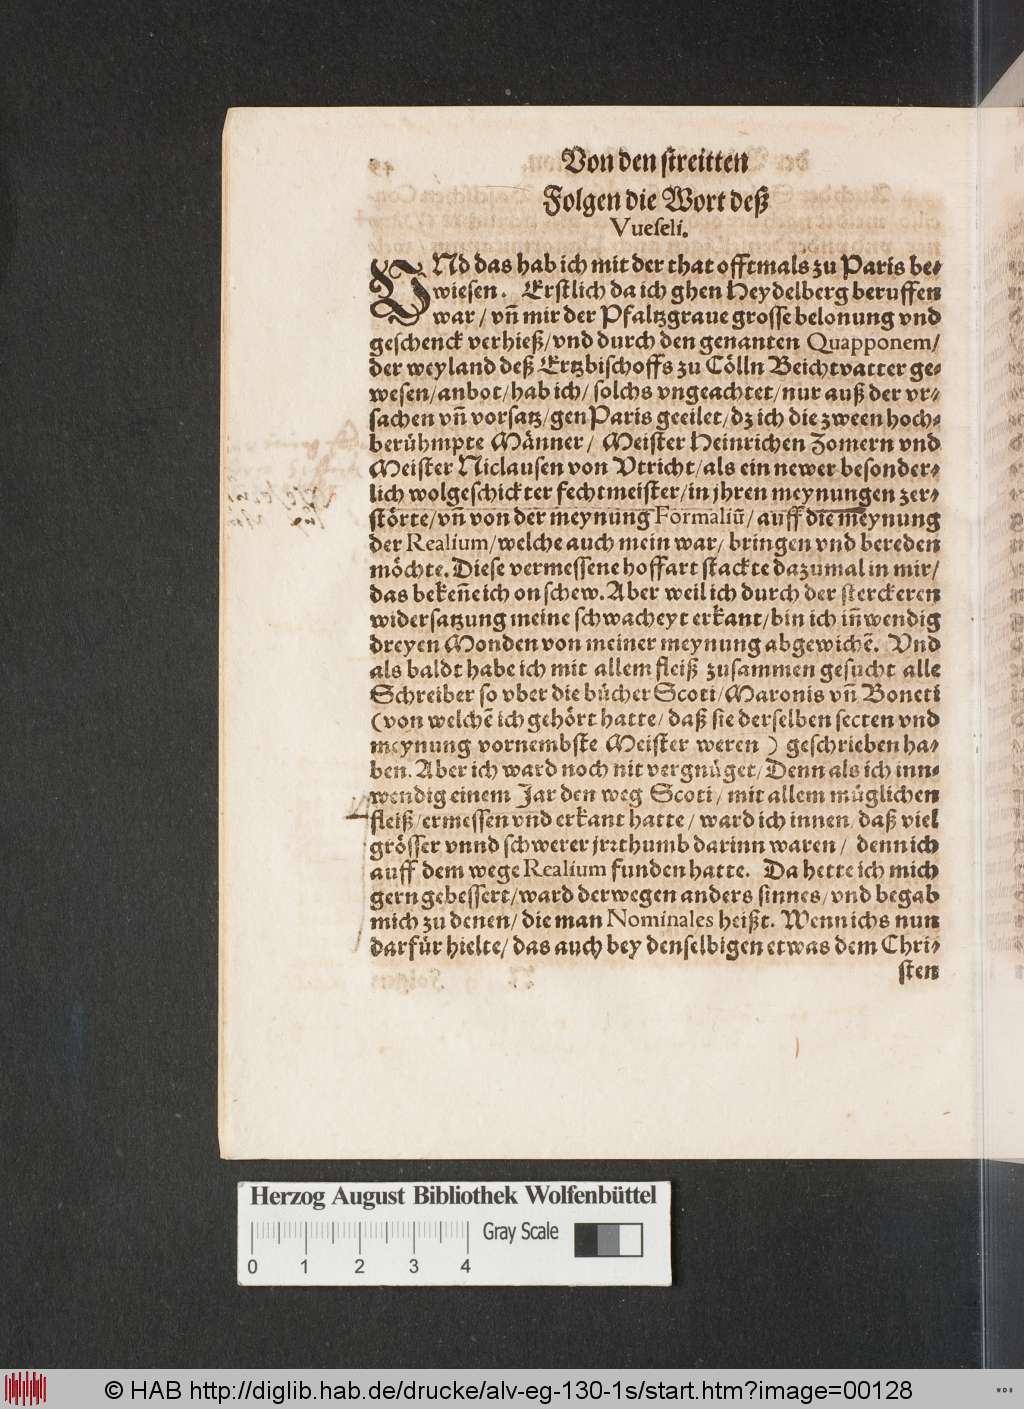 Von den streitten
Folgen die Wort deß
Vueseli.
VNd das hab ich mit der that offtmals zu Paris be⸗
wiesen. Erstlich da ich ghen Heydelberg beruffen
war / vñ mir der Pfaltzgraue grosse belonung vnd
geschenck verhieß/vnd durch den genanten Quapponem/
der weyland deß Ertzbischoffs zu Cölln Beichtvatter ge⸗
wesen/anbot/hab ich/ solchs vngeachtet/nur auß der vr⸗
sachen vñ vorsatz/gen Paris geeilet/dz ich die zween hoch⸗
berühmpte Männer/ Meister Heinrichen Zomern vnd
Meister Niclausen von Vtricht/als ein newer besonder⸗
lich wolgeschickter fechtmeister/in jhren meynungen zer⸗
störte/vñ von der meynung Formaliũ/ auff die meynung
der Realium/welche auch mein war/ bringen vnd bereden
möchte. Diese vermessene hoffart stackte dazumal in mir/
das bekeñe ich on schew. Aber weil ich durch der sterckeren
widersatzung meine schwacheyt erkant/bin ich iñwendig
dreyen Monden von meiner meynung abgewichẽ. Vnd
als baldt habe ich mit allem fleiß zusammen gesucht alle
Schreiber so vber die bücher Scoti/Maronis vñ Boneti
(von welchẽ ich gehört hatte/ daß sie derselben secten vnd
meynung vornembste Meister weren ) geschrieben ha⸗
ben. Aber ich ward noch nit vergnüget/Denn als ich inn⸗
wendig einem Jar den weg Scoti/ mit allem müglichen
fleiß/ermessen vnd erkant hatte/ ward ich innen, daß viel
grösser vnnd schwerer jrrthumb darinn waren/ denn ich
auff dem wege Realium funden hatte. Da hette ich mich
gern gebessert/ward derwegen anders sinnes/vnd begab
mich zu denen/ die man Nominales heißt. Wenn ichs nun
darfür hielte/ das auch bey denselbigen etwas dem Chri⸗
sten
Herzog August Bibliothek Wolfenbüttel
Gray Scale
0 1 2 3 4
© HAB http://diglib.hab.de/drucke/alv-eg-130-1s/start.htm?image=00128